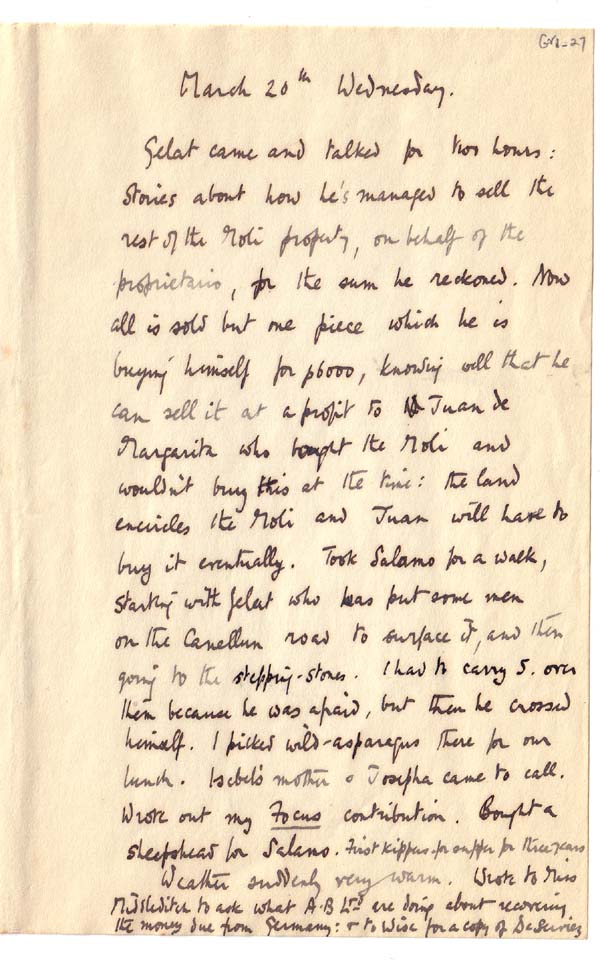 Gra-27
March 20th Wednesday.
Gelat came and talked for two hours:
Stories about how he's managed to sell the
rest of the Moli property, on behalf of the
proprietario, for the sum he reckoned. Now
all is sold but one piece which he is
buying himself for p6000, knowing well that he
can sell it at a profit to Juan de
Margarita who bought the Moli and
wouldn't buy this at the time: the land
encircles the Moli and Juan will have to
buy it eventually. Took Salamo for a walk,
starting with Gelat who has put some men
on the Canellun road to surface it, and then
going to the stepping-stones. I had to carry S. over
them because he was afraid, but then he crossed
himself. I picked wild-asparagus there for our
lunch. Isabel's mother & Josepha came to call.
Wrote out my Focus contribution. Bought a
sheepshead for Salamo. First kippers for supper for three years
Weather suddenly very warm. Wrote to Miss
Middleditch to ask what A-B Ltd are doing about recovering
the money due from Germany: & to Wise for a copy of De Serviez